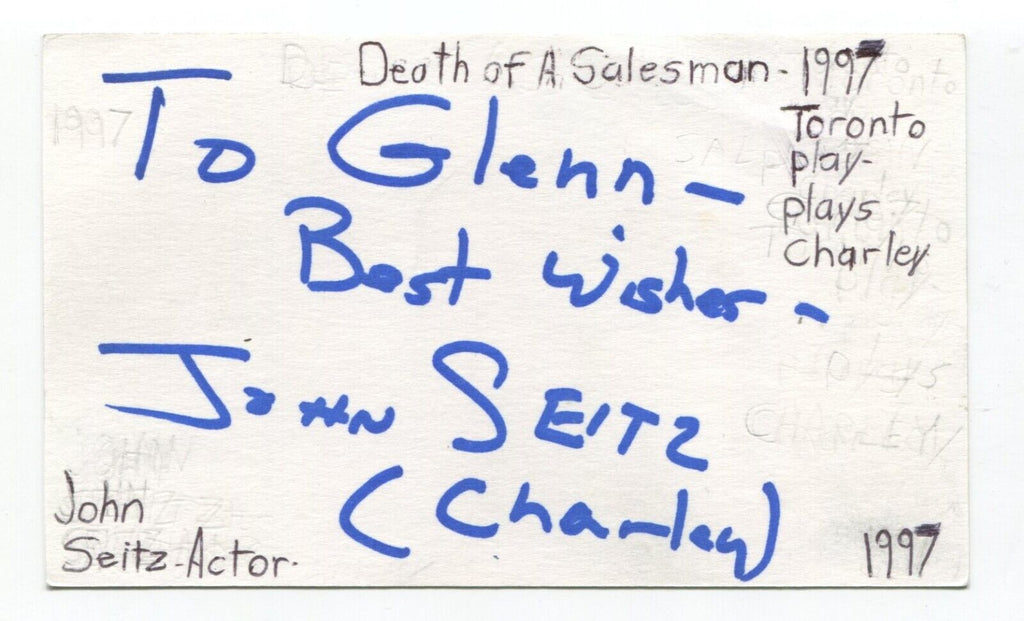 Death of A Salesman - 1997
Toronto
play-
plays
Charley
To Glenn -
Best Wishes -
JOHN SEITZ
(Charley)
John
Seitz-Actor.
1997
1997